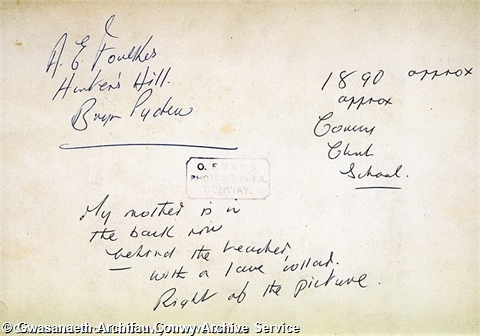 A. E. Foulkes
Hunter's Hill.
Bryn Pydew.
1890 approx
approx
Conway
Church
School.
O. EVANS,
PHOTOGRAPHER,
CONWAY.
My mother is in
the back row
behind the teacher,
with a lace collar.
Right of the picture.
© Gwasanaeth Archifau Conwy Archive Service